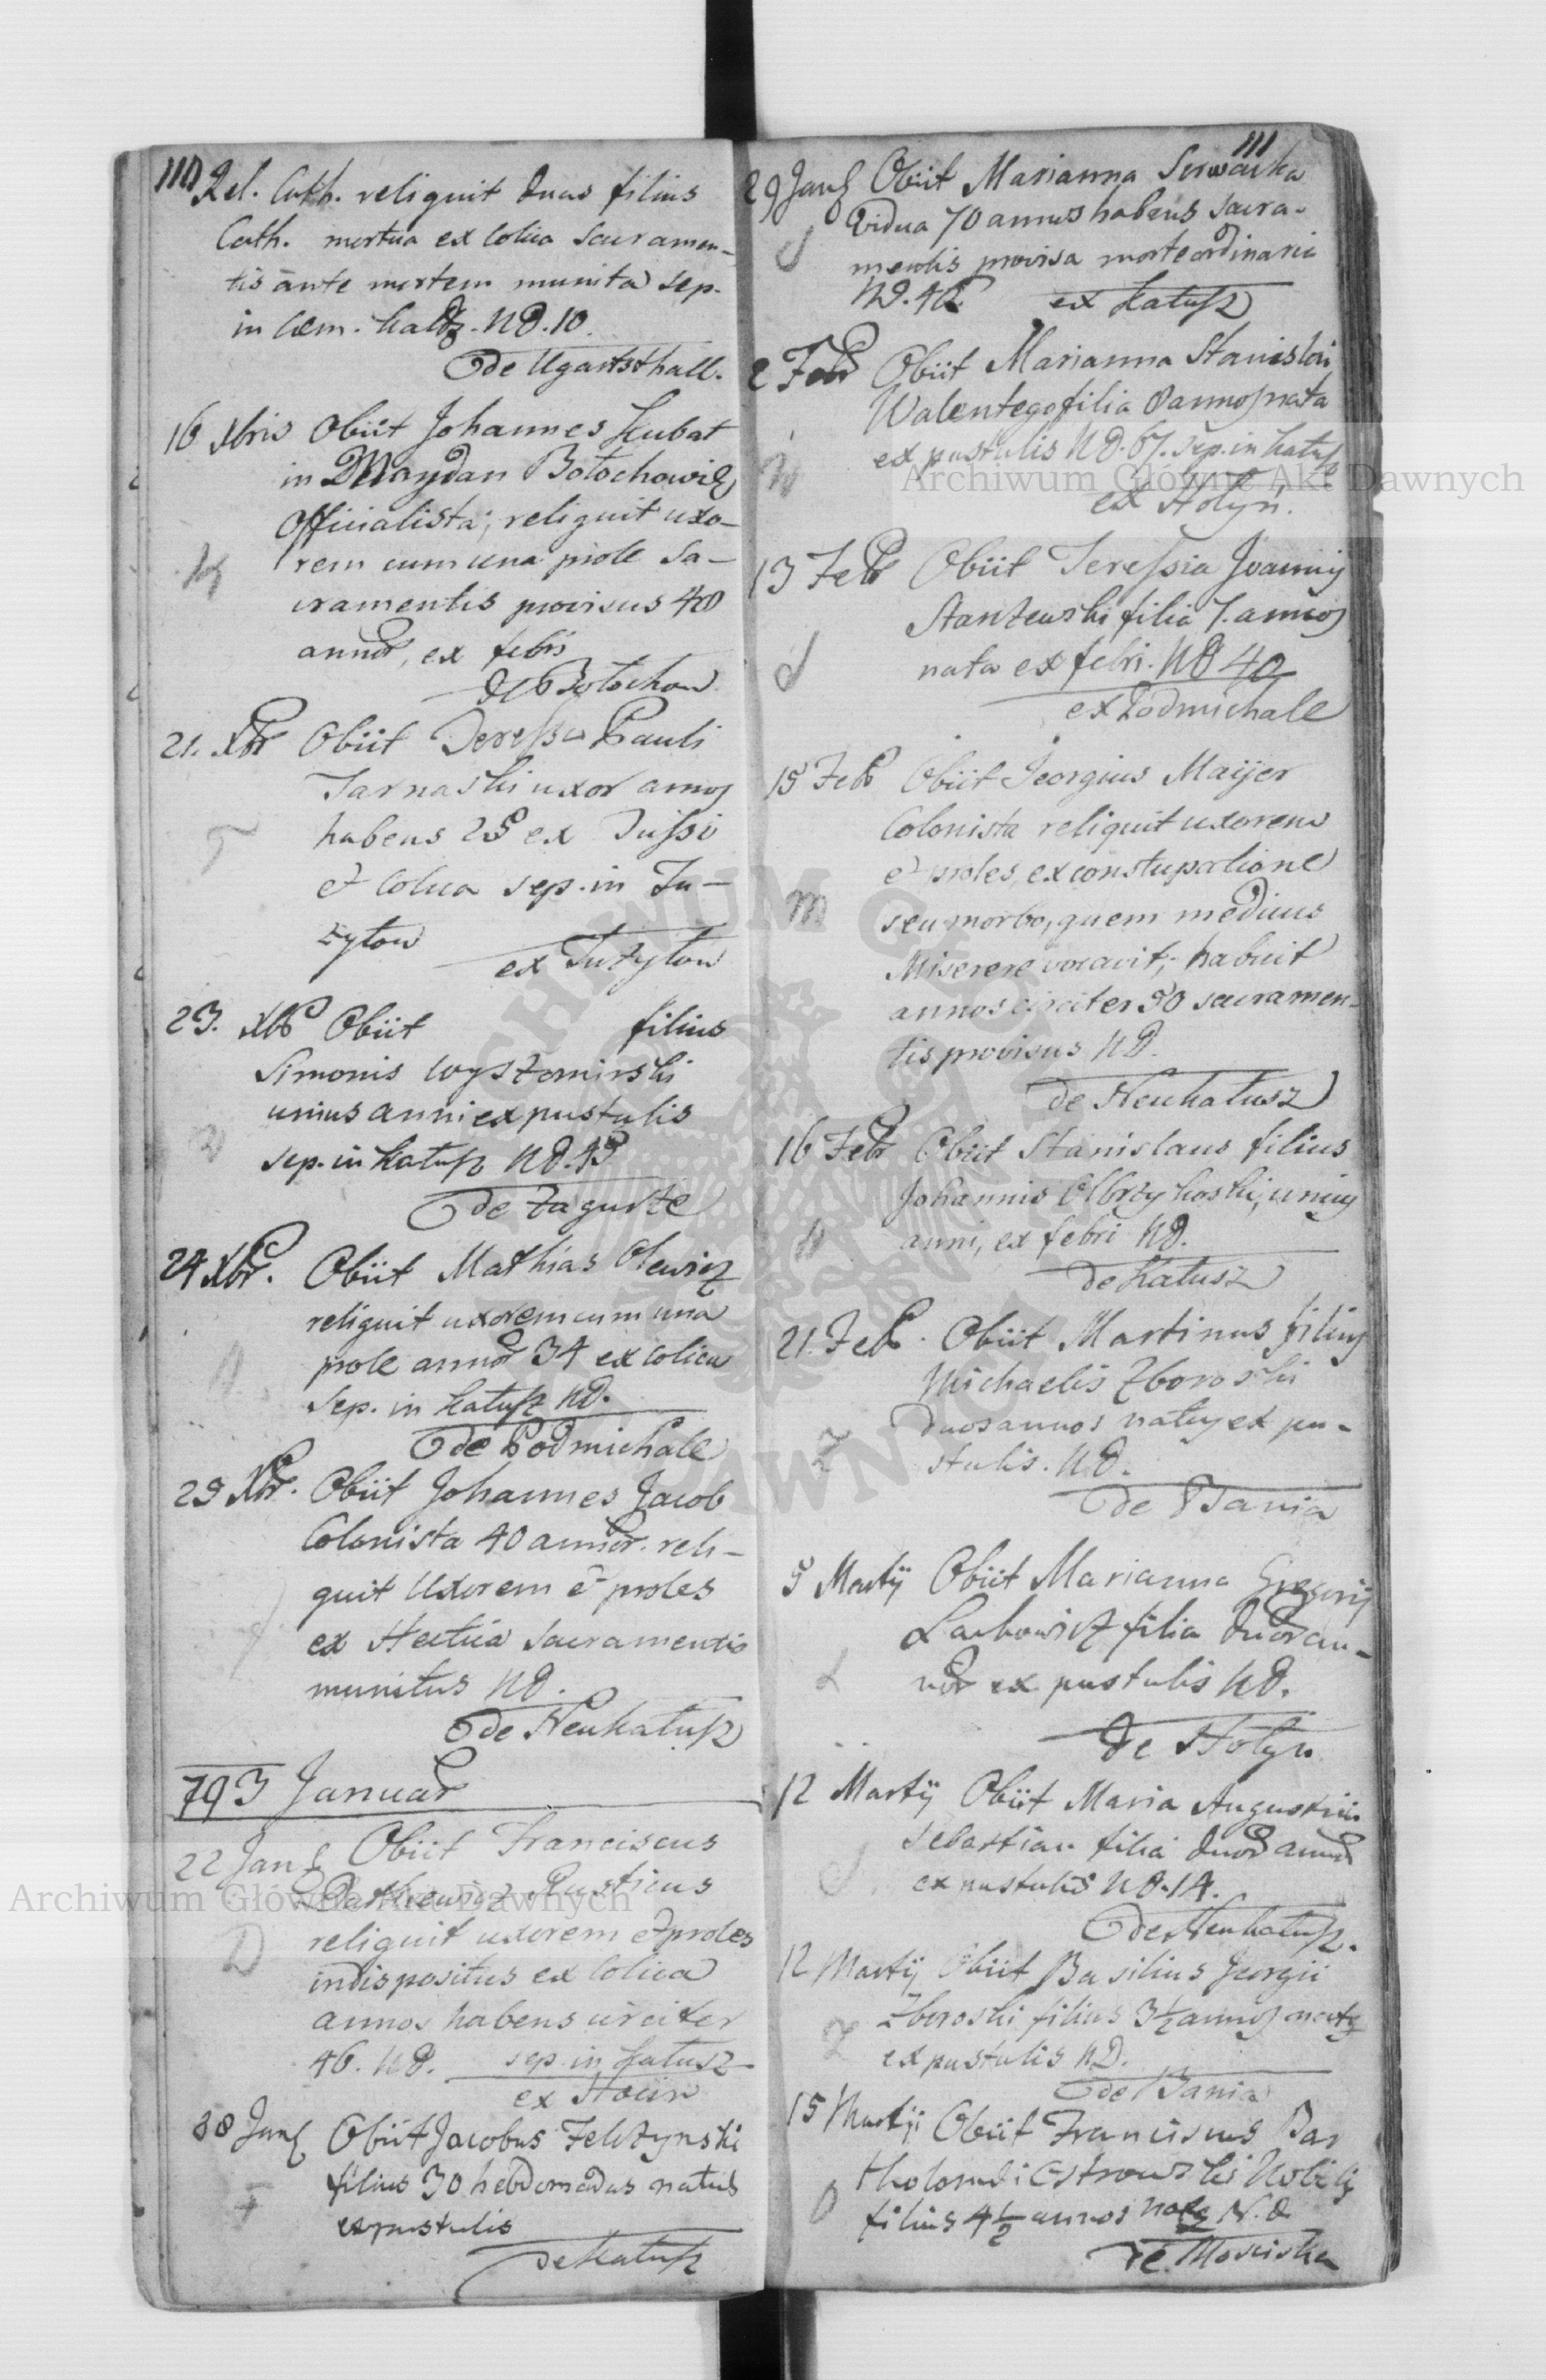 110
Rel. Cath. reliquit duas filias
Cath. mortua ex Colica Sacramen-
tis ante mortem munita sep.
in Cæm. Kalus. ND. 10.
de Ugartsthall.
16 Xbris Obiit Johannes Kubat
in Maydan Bołochowien
Officialista, reliquit uxo-
rem cum una prole Sa-
cramentis provisus 40
annor, ex febri
de Bołochow
21. Xbr Obiit Teressa Pauli
Tarnaski uxor annos
habens 25 ex Tussi
et Colica sep. in Tu-
zyłow
ex Tuzyłow
23. Xbr Obiit filius
Simonis Wyszomirski
unius anni ex pustulis
sep. in Kałusz ND. 45
de Zagurze
24 Xbr. Obiit Mathias Olewicz
reliquit uxorem cum una
prole annor 34 ex colica
Sep. in Kałusz ND.
de Podmichale
29 Xbr. Obiit Johannes Jacob
Colonista 40 annor. reli-
quit Uxorem et proles
ex Hectica Sacramentis
munitus ND.
de Neukałusz
793 Januar
22 Jan Obiit Franciscus
Rusticus
reliquit uxorem et proles
indispositus ex Colica
annos habens circiter
46. ND. sep. in Kałusz
ex Hocin
28 Jan Obiit Jacobus Felsztynski
filius 30 hebdomadas natus
ex pustulis
de Kałusz
111
29 Jan Obiit Marianna Serwacka
Vidua 70 annos habens sacra-
mentis provisa morte ordinaria
ND. 42 ex Kałusz
2 Febr Obiit Marianna Stanislai
Walentego filia 8 annos nata
ex pustulis ND. 67. sep. in Kałusz
ex Hołyń.
13 Febr Obiit Teressia Joannis
Stanzewski filia 7. annos
nata ex febri. ND 40
ex Podmichale
15 Feb Obiit Georgius Maijer
Colonista reliquit uxorem
et proles, ex constupatione
seu morbo, quem medicus
Miserere vocavit, habuit
annos circiter 50 sacramen-
tis provisus ND.
de Neukałusz
16 Febr Obiit Stanislaus filius
Johannis Olbrzykoski, unius
anni, ex febri ND.
de Kałusz
21. Feb. Obiit Martinus filius
Michaelis Zboroski
duos annos natus ex pu-
stulis. ND.
de Bania
5 Martij Obiit Marianna Gregorij
Lachowicz filia duor an-
nor ex pustulis ND.
de Hołyn
12 Martij Obiit Maria Augustini
Sebastian filia duor annor
ex pustulis ND. 14.
de Neukałusz.
12 Martij Obiit Basilius Georgii
Zboroski filius 3½ annos natus
ex pustulis ND.
de Bania
15 Martij Obiit Franciscus Bar
tholomei Ostrowski Nobilis
filius 4½ annos natus N. D
de Mosciska
Archiwum Główne Akt Dawnych
Archiwum Główne Akt Dawnych